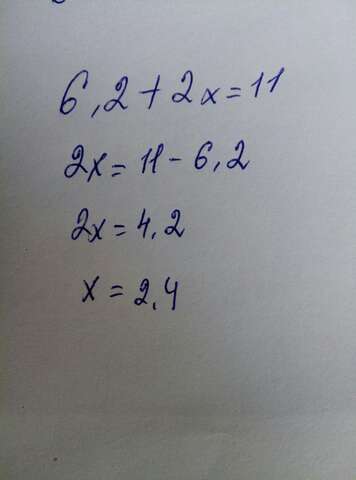 6,2+2x=11
2x=11-6,2
2x=4,2
x=2,4